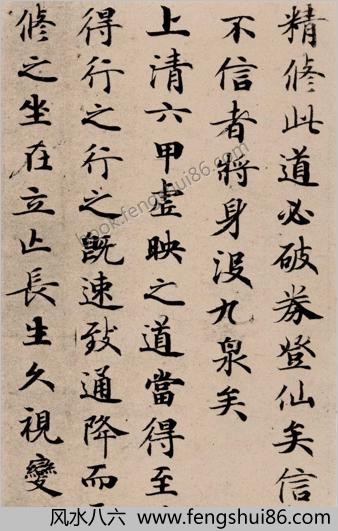 精修此道必破券登仙矣信
不信者將身没九泉矣
上清六甲虚映之道當得至
得行之行之既速致通降而
修之坐在立亡長生久視變
book.fengshui86.com
风水八六www.fengshui86.com